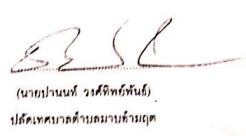 (นายปานนท์ วงศ์ทิพย์พันธ์)
ปลัดเทศบาลตำบลมาบอำมฤต